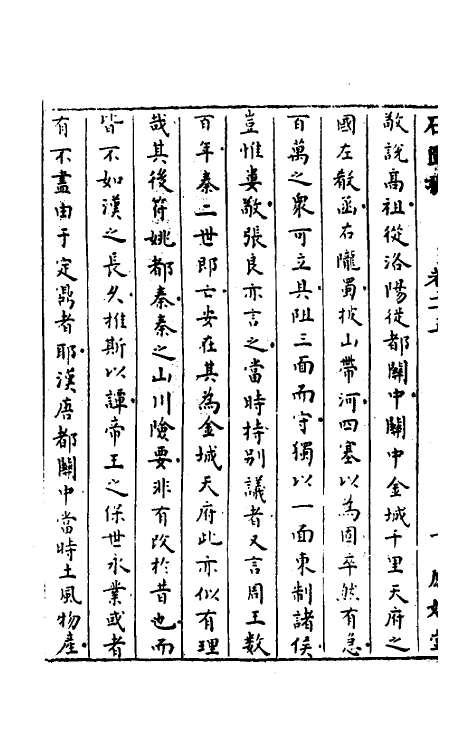 石匱書 卷二五 一
敬說高祖從洛陽徙都關中關中金城千里天府之
國左殽函右隴蜀披山帶河四塞以為固卒然有急
百萬之衆可立具阻三面而守獨以一面東制諸侯
豈惟婁敬張良亦言之當時持別議者又言周王數
百年秦二世即亡安在其為金城天府此亦似有理
哉其後苻姚都秦秦之山川險要非有改於昔也而
皆不如漢之長久推斯以譚帝王之保世永業或者
有不盡由于定鼎者耶漢唐都關中當時土風物產